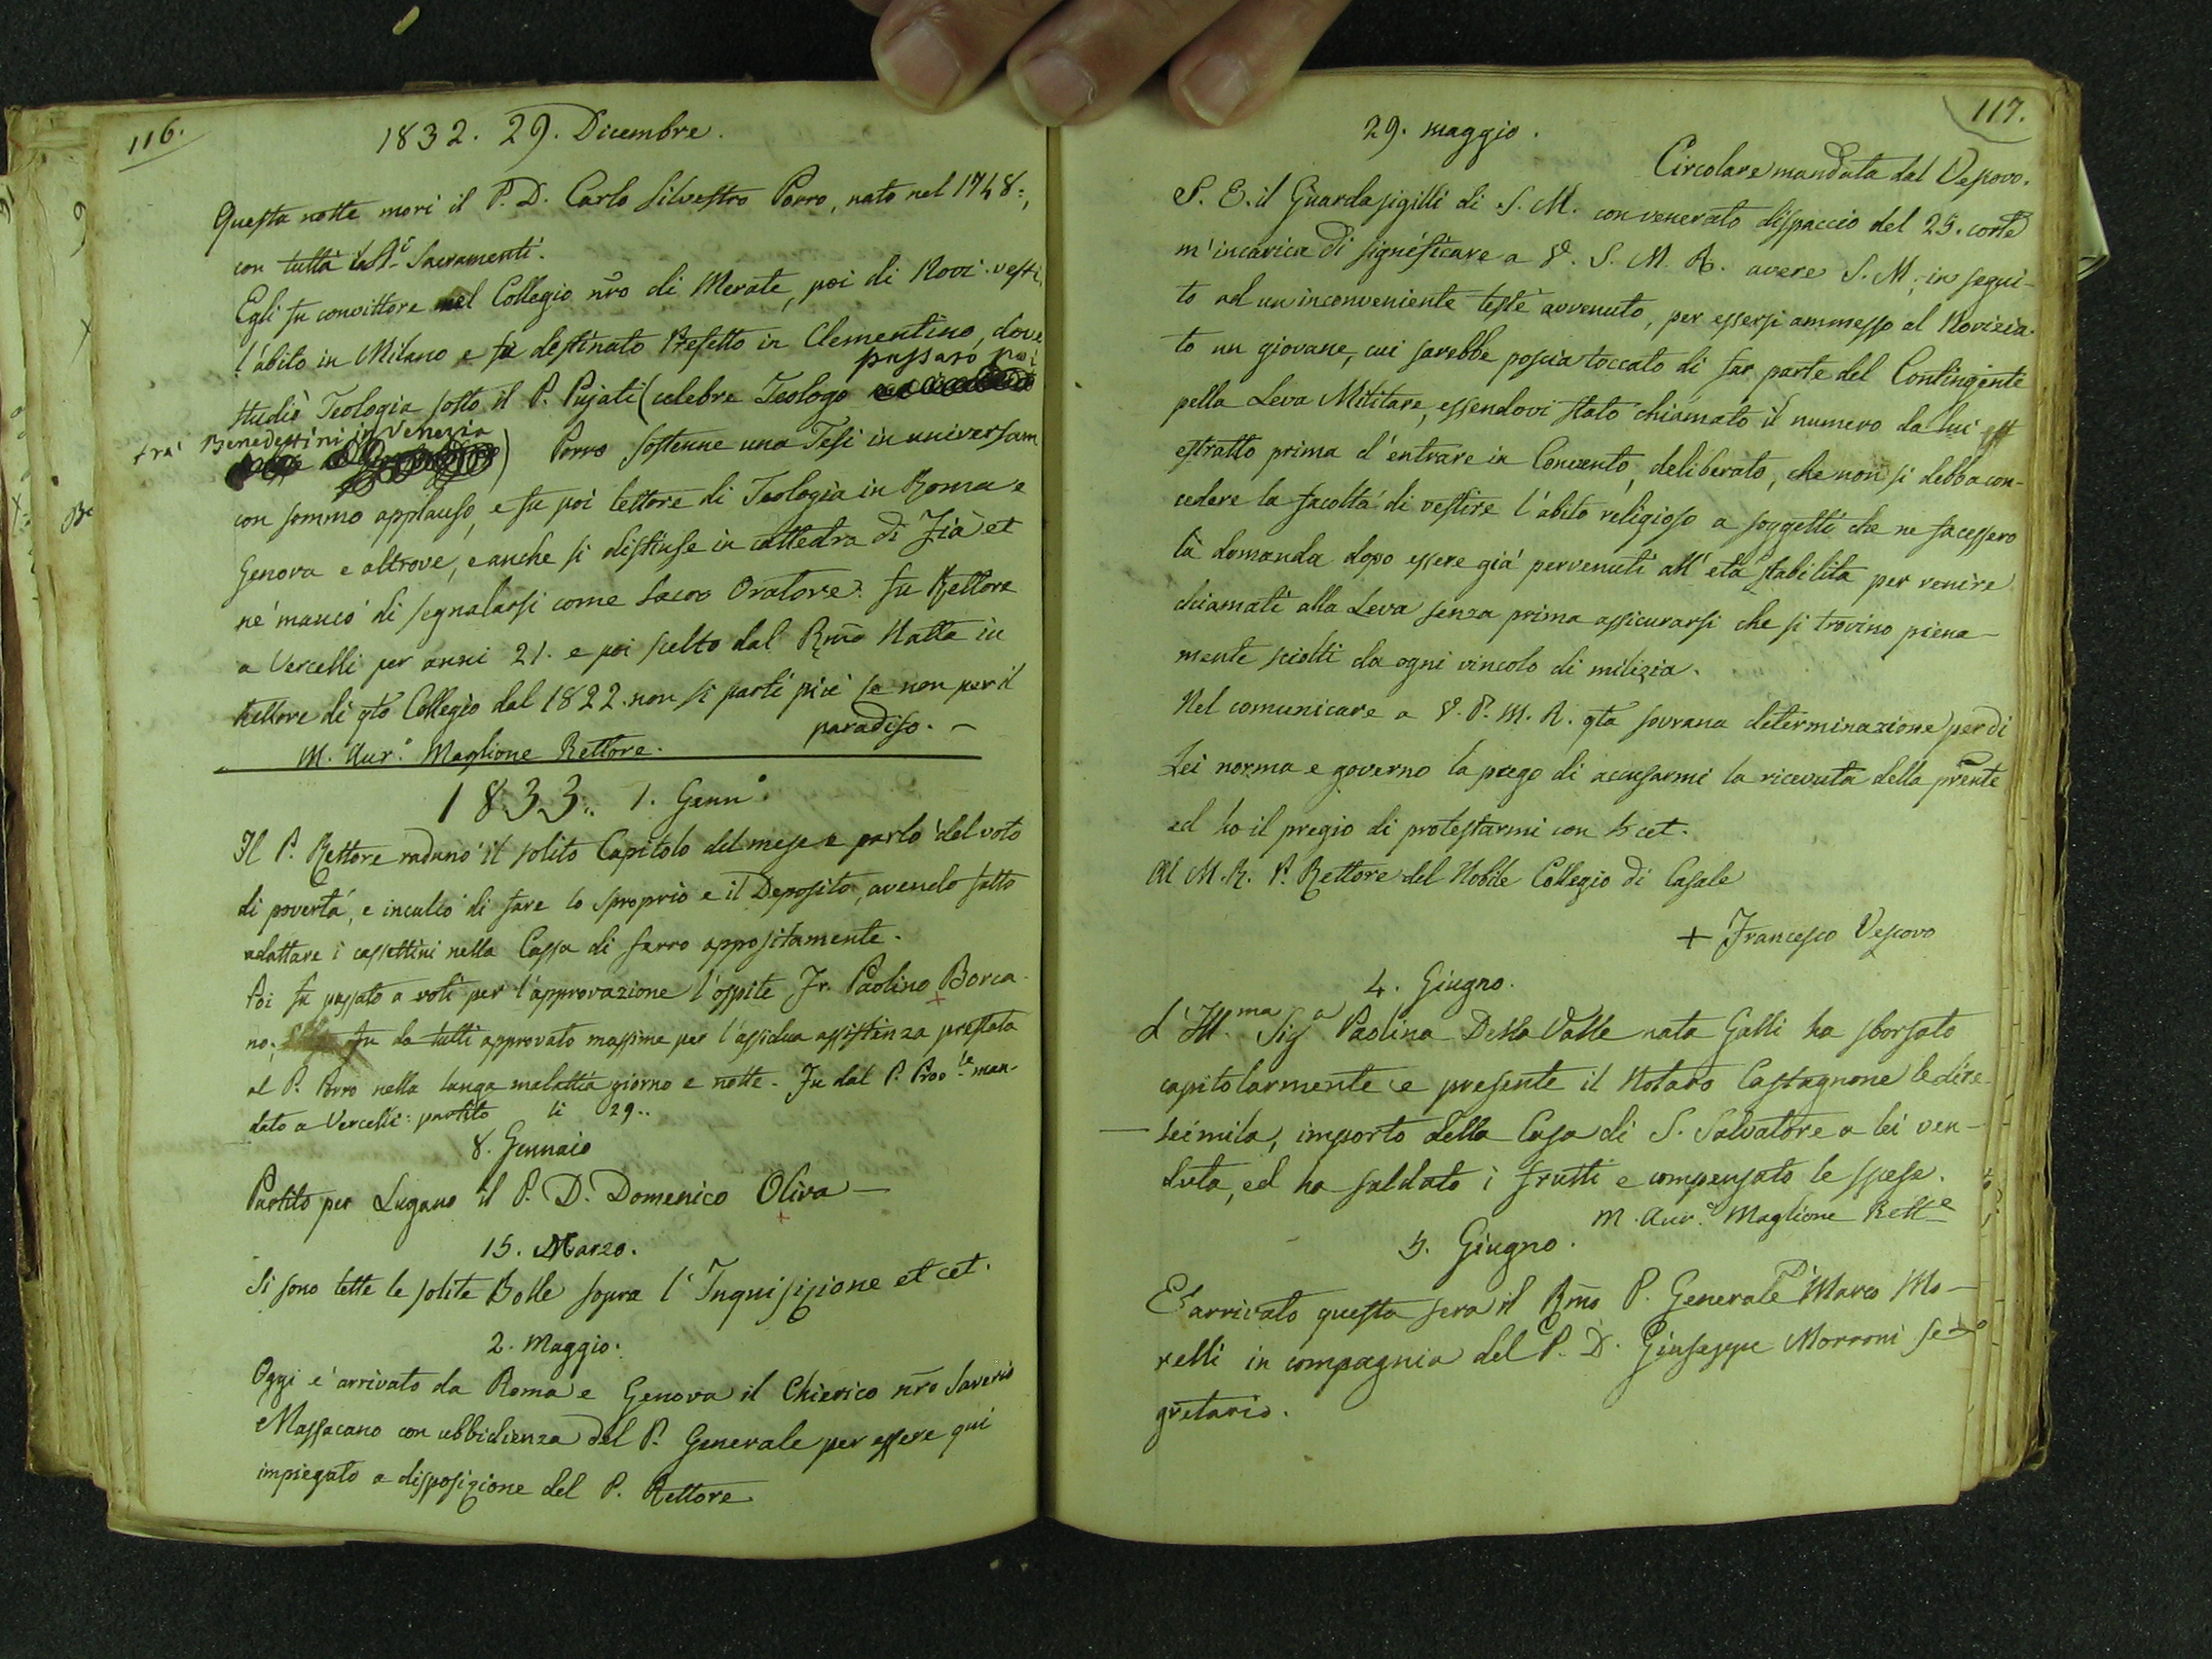 116.
1832. 29. Dicembre.
Questa notte morì il P. D. Carlo Silvestro Porro, nato nel 1748:,
con tutti i Sti Sacramenti.
Egli fu convittore nel Collegio nro di Merate, poi di Novi. vestì
l'abito in Milano e fu destinato Prefetto in Clementino, dove
studiò Teologia sotto il P. Pujati (celebre Teologo passato poi
tra' Benedettini in Venezia) Porro sostenne una Tesi in universam
con sommo applauso, e fu poi lettore di Teologia in Roma e
Genova e altrove, e anche si distinse in cattedra di Fia et
nè mancò di segnalarsi come Sacro Oratore. fu Rettore
a Vercelli per anni 21. e poi scelto dal Rmo Natta in
Rettore di qto Collegio dal 1822. non si partì più se non per il
paradiso. -
M. Aur.o Maglione Rettore.
1833.. 1. Genn.o
Il P. Rettore radunò il solito Capitolo del mese e parlò del voto
di povertà, e inculcò di fare lo sproprio e il Deposito, avendo fatto
adattare i cassettini nella Cassa di ferro appositamente.
Poi fu passato a voti per l'approvazione l'ospite Fr. Paolino Borca-
no; fu da tutti approvato massime per l'assidua assistenza prestata
al P. Porro nella lunga malattia giorno e notte. Fu dal P. Prov.le man-
dato a Vercelli: partito li 29..
8. Gennaio
Partito per Lugano il P. D. Domenico Oliva —
15. Marzo.
Si sono lette le solite Bolle sopra l'Inquisizione et cet.
2. Maggio.
Oggi è arrivato da Roma e Genova il Chierico nro Saverio
Massacano con ubbidienza del P. Generale per essere qui
impiegato a disposizione del P. Rettore
117.
29. maggio.
Circolare mandata dal Vescovo.
S. E. il Guardasigilli di S. M. con venerato dispaccio del 25. corte
m'incarica di significare a V. S. M. R. avere S. M; in segui-
to ad un inconveniente testè avvenuto, per essersi ammesso al Novizia-
to un giovane, cui sarebbe poscia toccato di far parte del Contingente
pella Leva Militare, essendovi stato chiamato il numero da lui
estratto prima d'entrare in Convento, deliberato, che non si debba con-
cedere la facoltà di vestire l'abito religioso a soggetti che ne facessero
la domanda dopo essere già pervenuti all'età stabilita per venire
chiamati alla Leva senza prima assicurarsi che si trovino piena-
mente sciolti da ogni vincolo di milizia.
Nel comunicare a V. P. M. R. qta sovrana determinazione per di
Lei norma e governo la prego di accusarmi la ricevuta della prente
ed ho il pregio di protestarmi con cet.
Al M. R. P. Rettore del Nobile Collegio di Casale
+ Francesco Vescovo
4. Giugno.
L'Ill.ma Sig.a Paolina Della Valle nata Galli ha sborsato
capitolarmente e presente il Notaro Castagnone le dieci-
seimila, importo della Casa di S. Salvatore a lei ven-
duta, ed ha saldato i frutti e compensato le spese.
M. Aur.o Maglione Rett.e
5. Giugno.
È arrivato questa sera il Rmo P. Generale Marco Mo-
relli in compagnia del P. D. Giuseppe Morroni Se-
gretario.